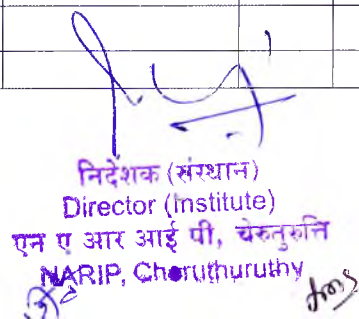 निदेशक (संस्थान)
Director (Institute)
एन ए आर आई पी, चेरुतुरुत्ति
NARIP, Cheruthuruthy